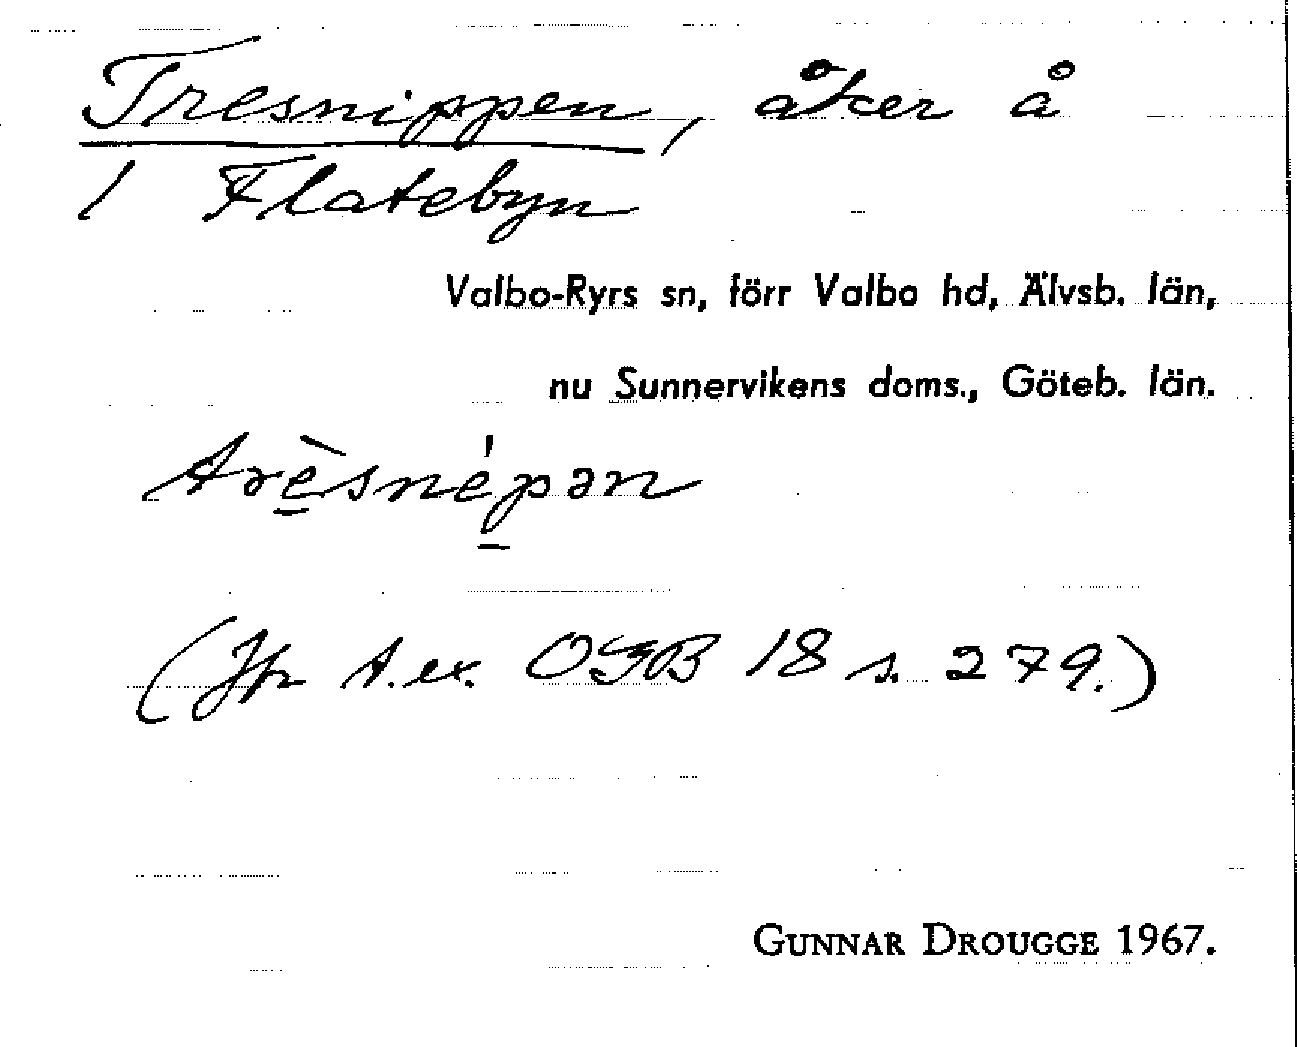 Tresnippen, åker å
1 Flatebyn
Valbo-Ryrs sn, förr Valbo hd, Älvsb. län,
nu Sunnervikens doms., Göteb. län.
trèsnépən
(Jfr t.ex. OGB 18 s. 279.)
GUNNAR DROUGGE 1967.